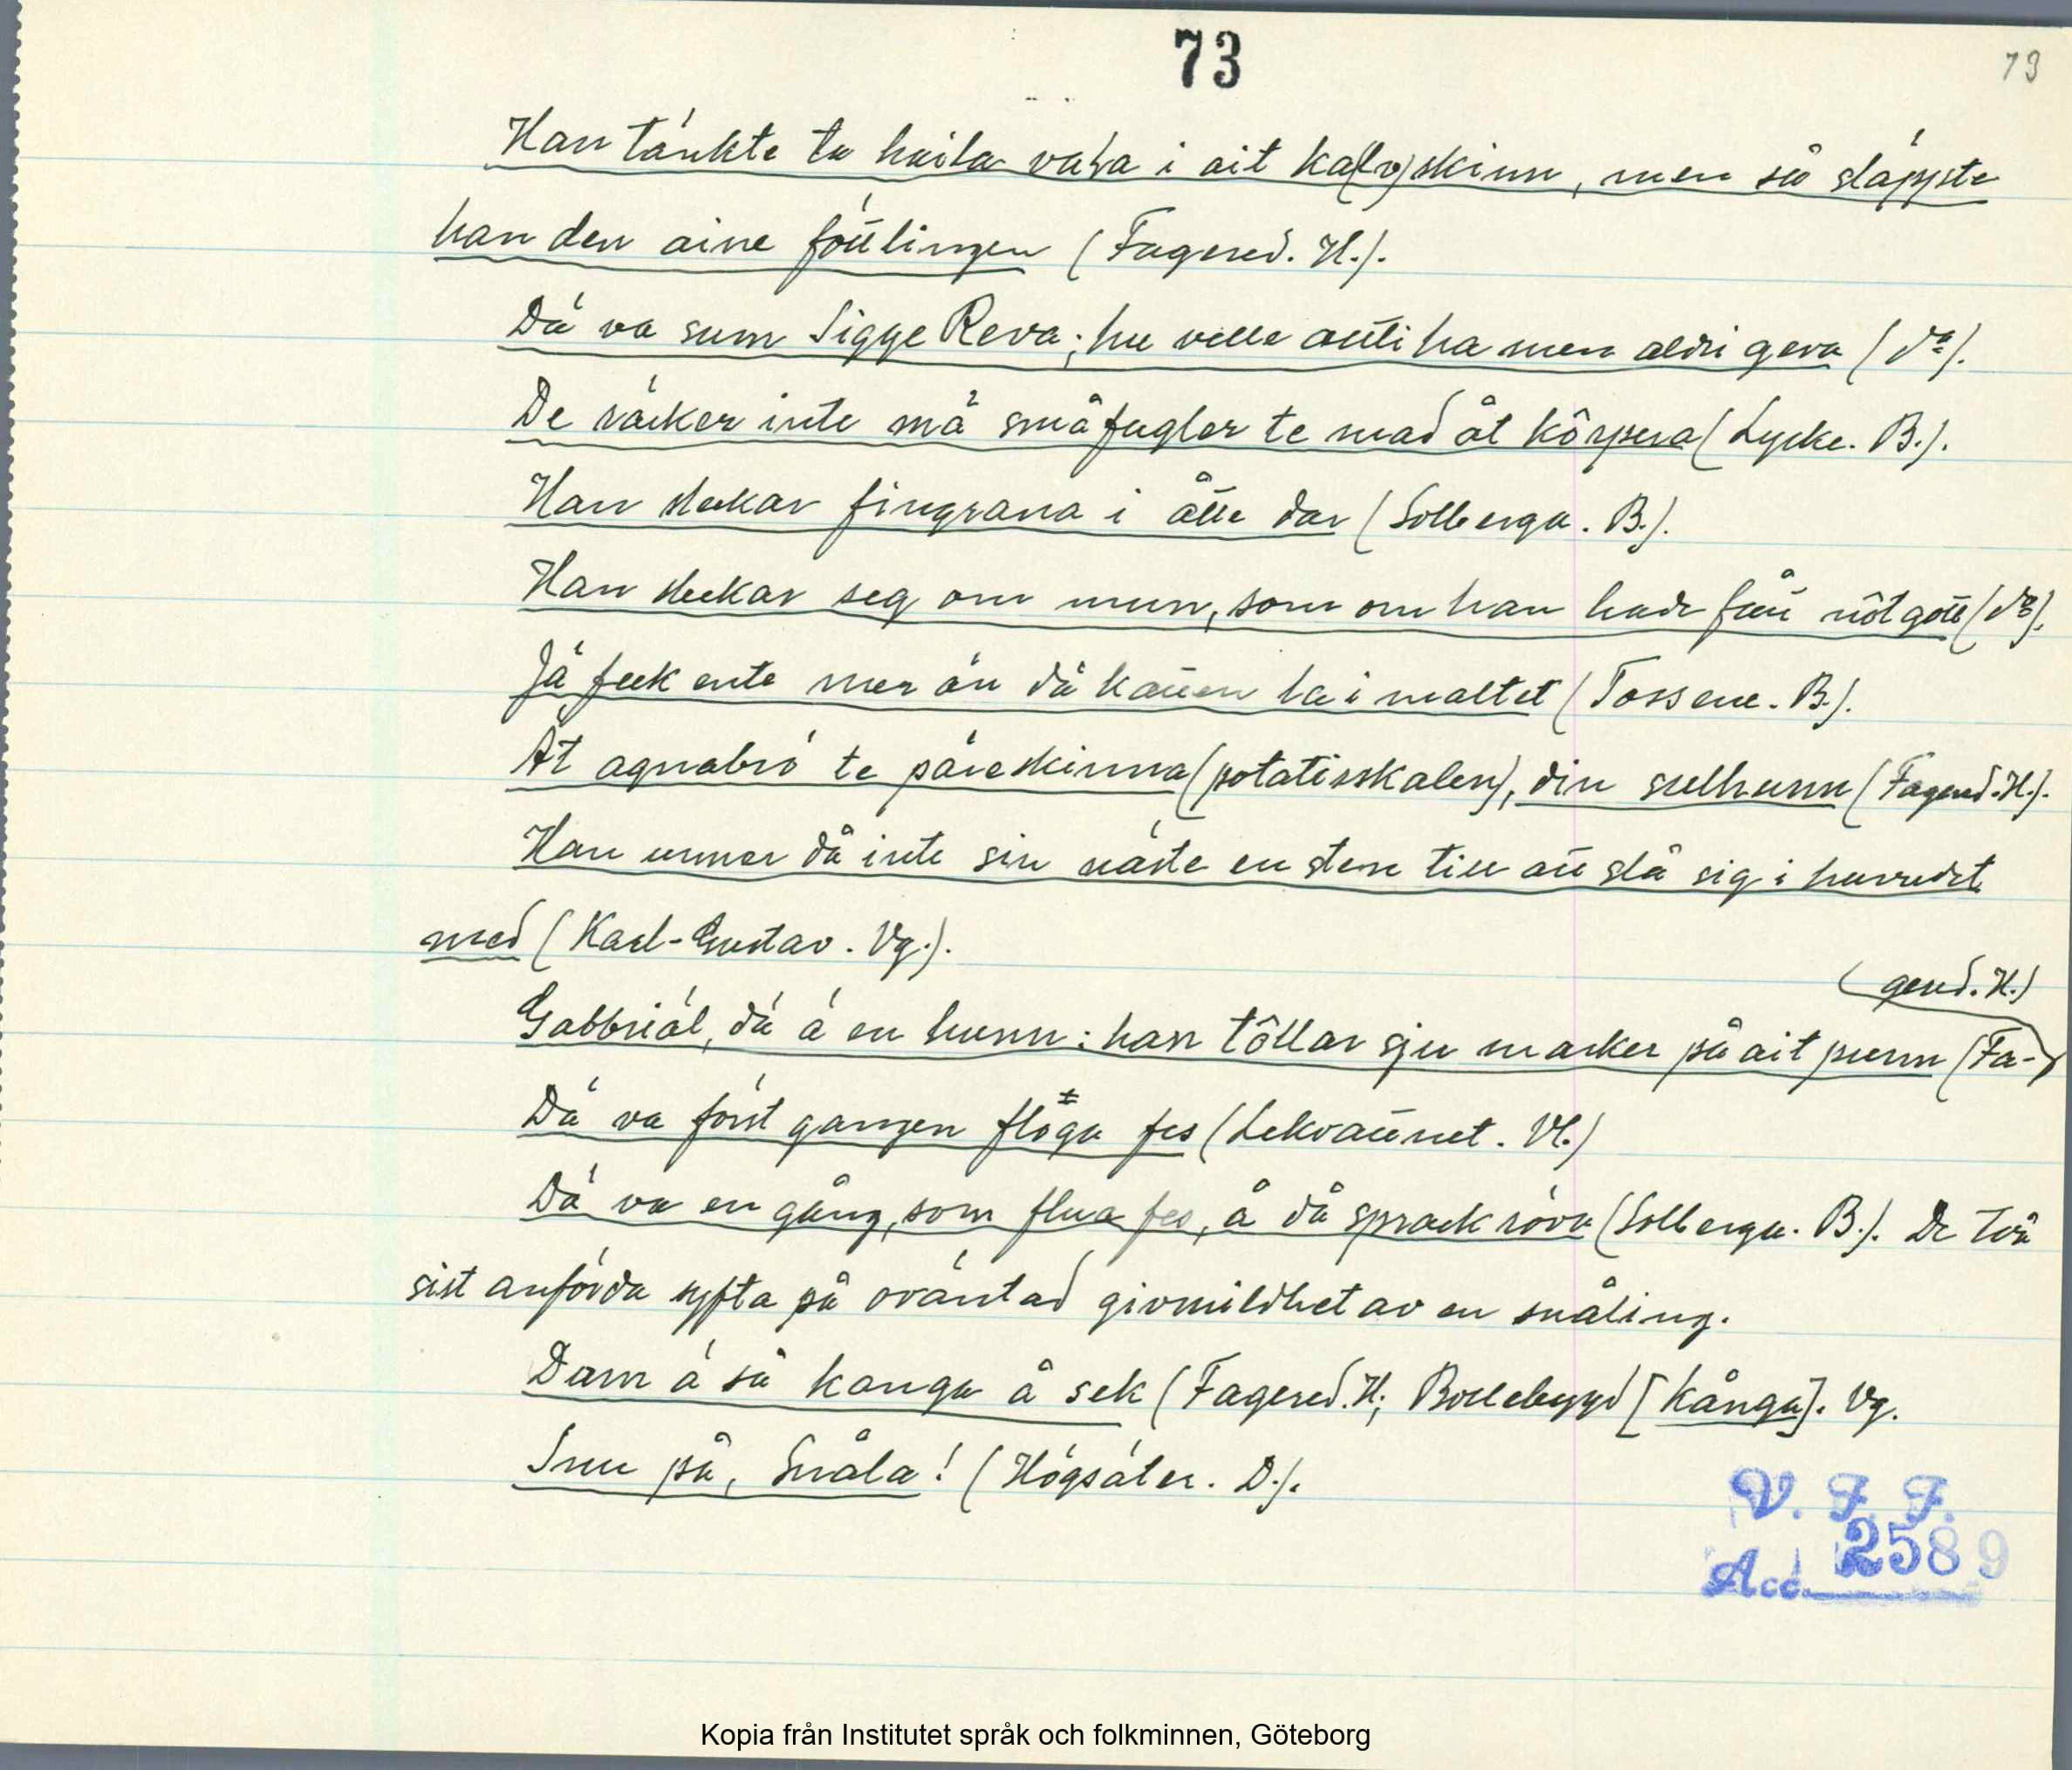 73
73
Han tänkte ta haila vała i ait ka(lv)skinn, men så släppste
han den aine föttlingen (Fagered. H.).
Dä va sum Sigge Reva; hu velle allti ha men aldri geva (do).
De räcker inte må småfugler te mad åt kôrpera (Lycke. B.).
Han slekar fingrana i åtte dar (Solberga. B.).
Han slekar seg om mun, som om han hade fått nôt gott (do).
Jä feck ente mer än då katten la i maltet (Tossene. B.).
Ät agnabrö te päreskinna (potatisskalen), din sulhunn (Fagered. H.).
Han unner då inte sin näste en sten till att slå sig i huvudet
med (Karl-Gustav. Vg.).
Gabbriäl, dä ä en hunn: han tôllar sju marker på ait punn (Fa-
(gered. H.)
Dä va först gangen flöga fes (Lekvattnet. Vl.)
Dä va en gång, som flua fes, å då sprack röva (Solberga. B.). De två
sist anförda syfta på oväntad givmildhet av en snåling.
Dam ä så kanga å sek (Fagered. H; Bollebygd [kånga]. Vg.
Snu på, Snåla! (Högsäter. D.).
V. F. F.
Acc. 2589
Kopia från Institutet språk och folkminnen, Göteborg